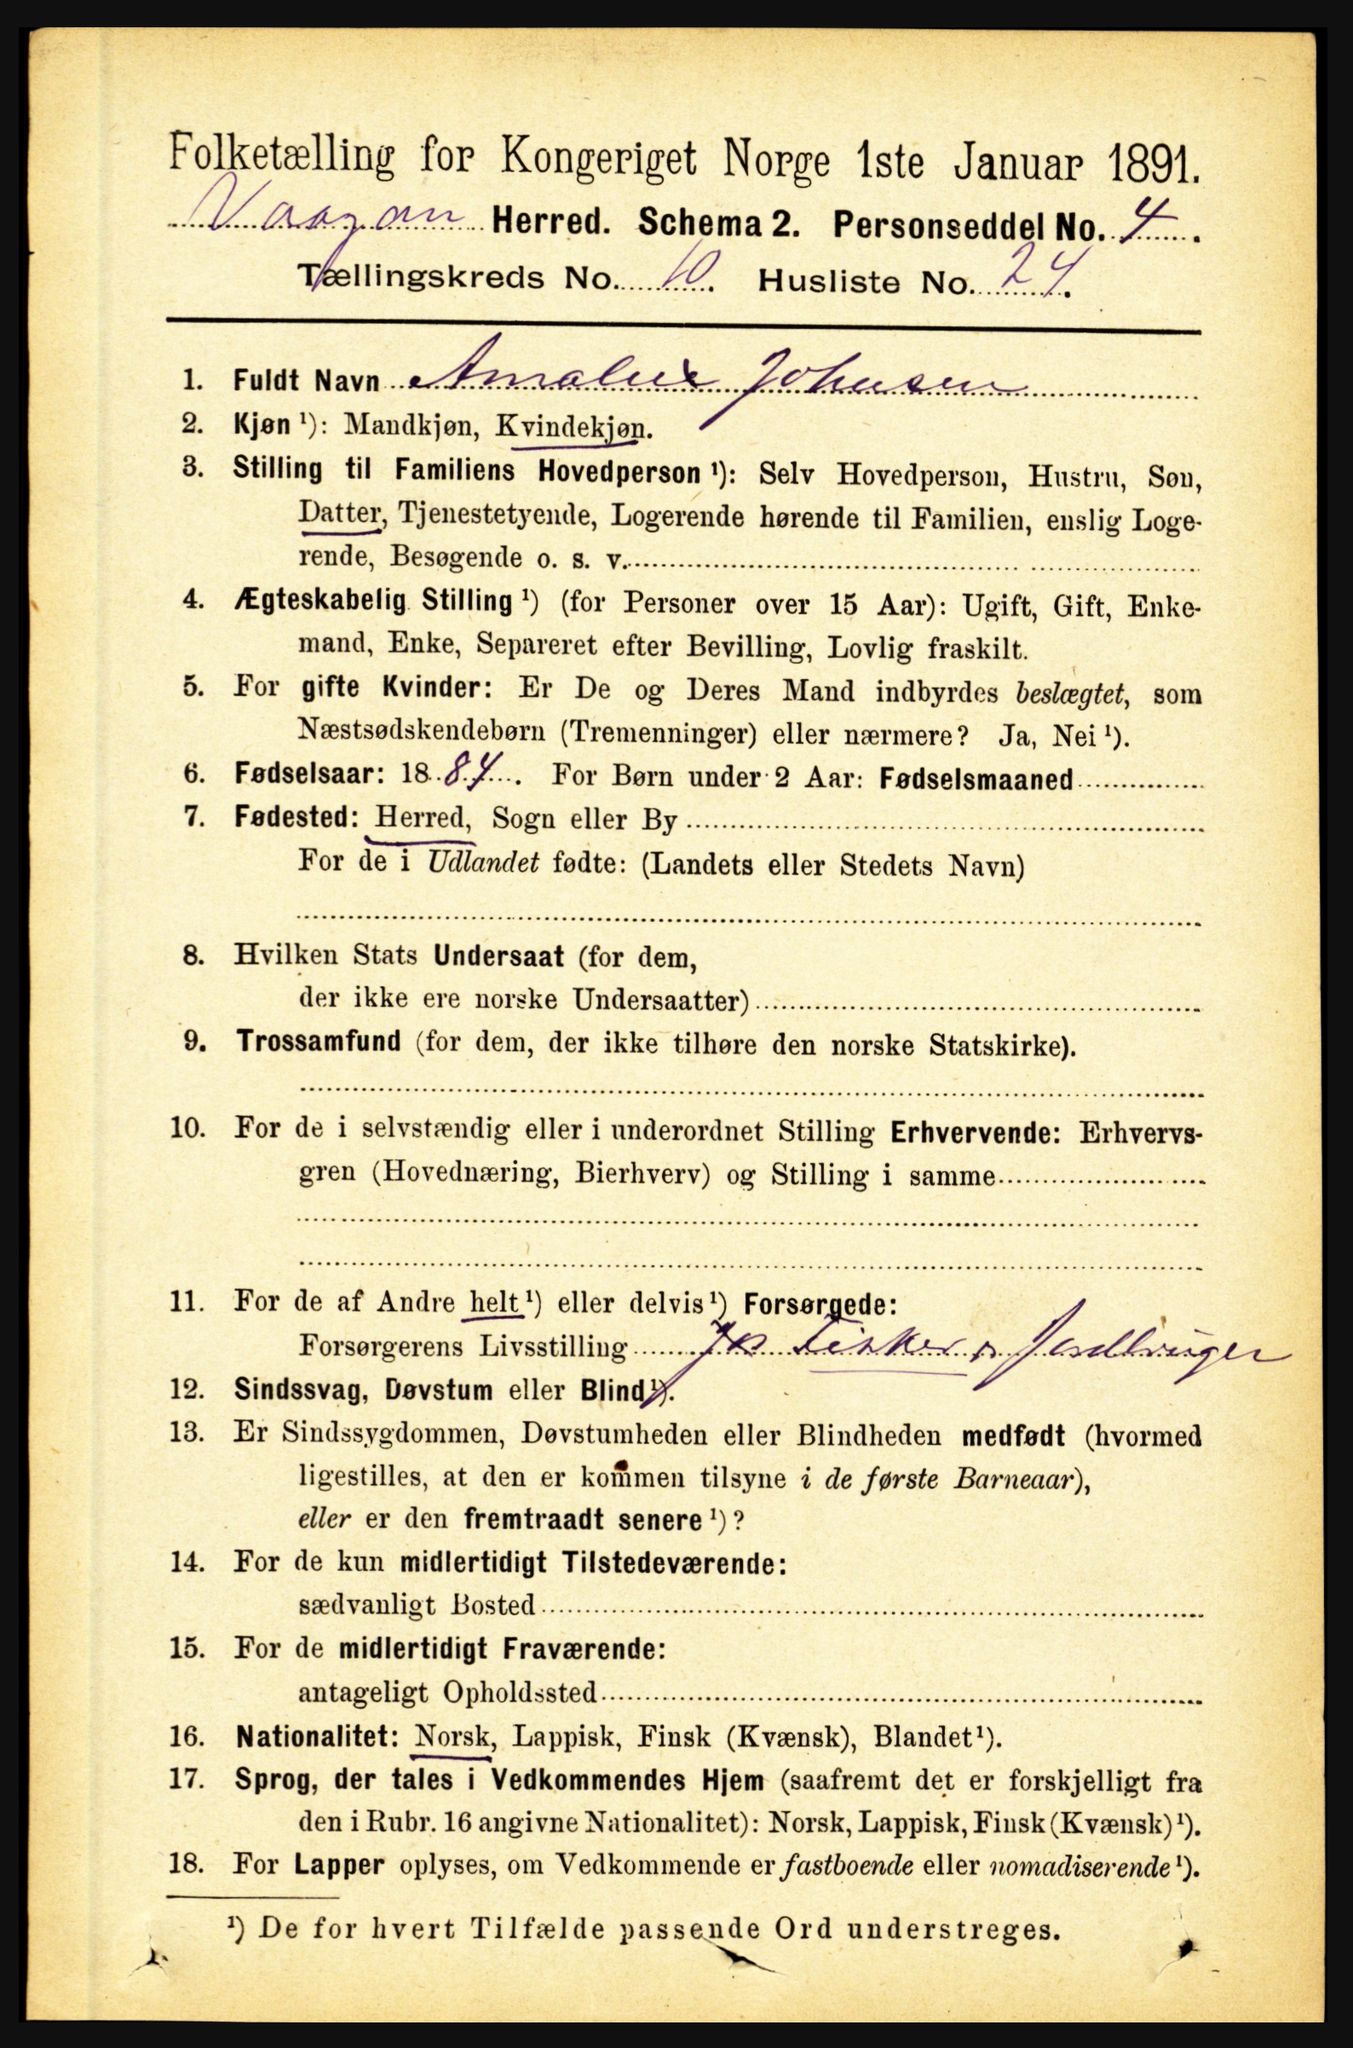 Folketælling for Kongeriget Norge 1ste Januar 1891.
Vaagan Herred. Schema 2. Personseddel No. 4.
Tællingskreds No. 10. Husliste No. 24.
1. Fuldt Navn Amalie Johnsen
2. Kjøn ¹): Mandkjøn, Kvindekjøn.
3. Stilling til Familiens Hovedperson ¹): Selv Hovedperson, Hustru, Søn,
Datter, Tjenestetyende, Logerende hørende til Familien, enslig Loge-
rende, Besøgende o. s. v.
4. Ægteskabelig Stilling ¹) (for Personer over 15 Aar): Ugift, Gift, Enke-
mand, Enke, Separeret efter Bevilling, Lovlig fraskilt.
5. For gifte Kvinder: Er De og Deres Mand indbyrdes beslægtet, som
Næstsødskendebørn (Tremenninger) eller nærmere? Ja, Nei ¹).
6. Fødselsaar: 1884. For Børn under 2 Aar: Fødselsmaaned
7. Fødested: Herred, Sogn eller By
For de i Udlandet fødte: (Landets eller Stedets Navn)
8. Hvilken Stats Undersaat (for dem,
der ikke ere norske Undersaatter)
9. Trossamfund (for dem, der ikke tilhøre den norske Statskirke).
10. For de i selvstændig eller i underordnet Stilling Erhvervende: Erhvervs-
gren (Hovednæring, Bierhverv) og Stilling i samme
11. For de af Andre helt ¹) eller delvis ¹) Forsørgede:
Forsørgerens Livsstilling Fisker Jordbruger
12. Sindssvag, Døvstum eller Blind ¹).
13. Er Sindssygdommen, Døvstumheden eller Blindheden medfødt (hvormed
ligestilles, at den er kommen tilsyne i de første Barneaar),
eller er den fremtraadt senere ¹)?
14. For de kun midlertidigt Tilstedeværende:
sædvanligt Bosted
15. For de midlertidigt Fraværende:
antageligt Opholdssted
16. Nationalitet: Norsk, Lappisk, Finsk (Kvænsk), Blandet ¹).
17. Sprog, der tales i Vedkommendes Hjem (saafremt det er forskjelligt fra
den i Rubr. 16 angivne Nationalitet): Norsk, Lappisk, Finsk (Kvænsk) ¹).
18. For Lapper oplyses, om Vedkommende er fastboende eller nomadiserende ¹).
¹) De for hvert Tilfælde passende Ord understreges.